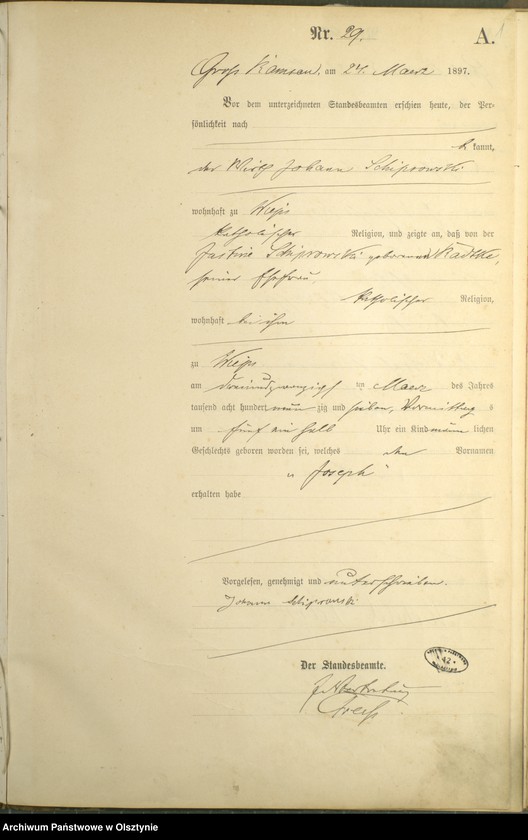 Nr. 29.
A.
Groß Kamsau, am 24. Maerz 1897.
Vor dem unterzeichneten Standesbeamten erschien heute, der Per-
sönlichkeit nach
be kannt,
der Wirth Johann Schiprowski
wohnhaft zu Wieps
katholischer Religion, und zeigte an, daß von der
Justine Schiprowski geborenen Radtke,
seiner Ehefrau,
katholischer Religion,
wohnhaft bei ihm
zu Wieps
am dreiundzwanzigsten Maerz des Jahres
tausend acht hundert neun zig und sieben, Vormittag s
um fünf ein halb Uhr ein Kind männ lichen
Geschlechts geboren worden sei, welches den Vornamen
„Joseph“
erhalten habe
Vorgelesen, genehmigt und unterschrieben.
Johann Schiprowski
Der Standesbeamte.
Archiwum Państwowe w Olsztynie